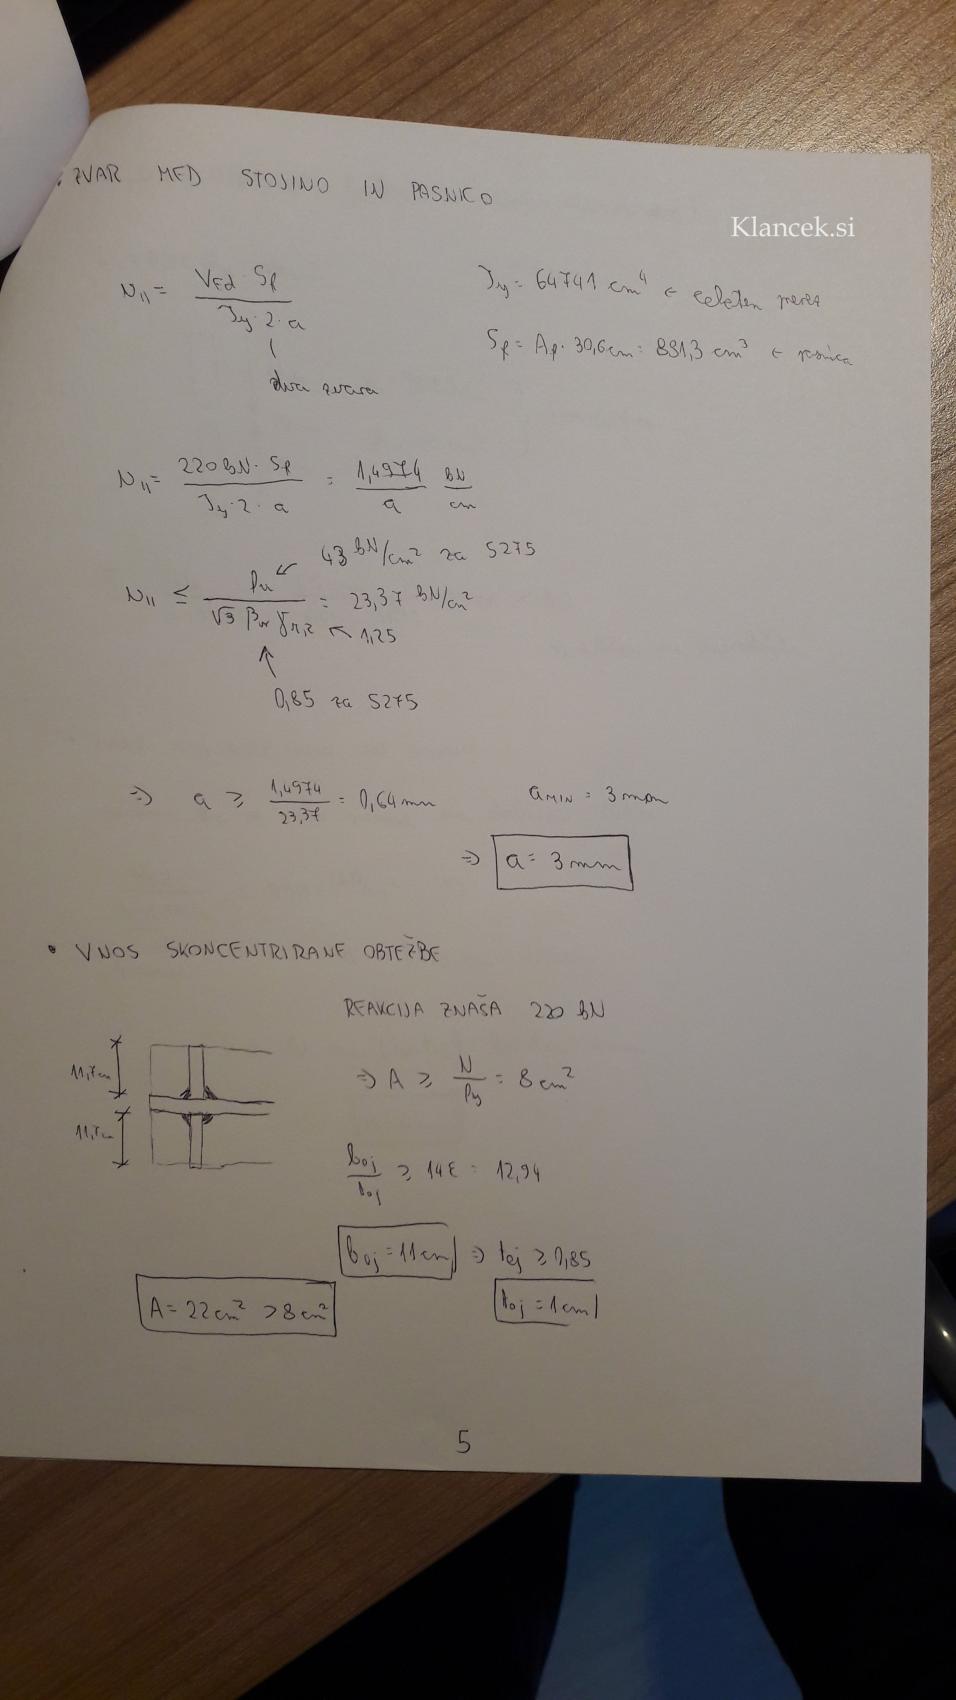 • ZVAR MED STOJINO IN PASNICO
Klancek.si
N_II = (V_Ed · S_f) / (I_y · 2 · a)
dva zvara
I_y = 64741 cm⁴ ← celoten prerez
S_f = A_f · 30,6 cm = 881,3 cm³ ← pasnica
N_II = (220 kN · S_f) / (I_y · 2 · a) = 1,4974 / a kN/cm
43 kN/cm² za S275
N_II ≤ f_u / (√3 β_w γ_M,2) = 23,37 kN/cm²
1,25
0,85 za S275
⇒ a ≥ 1,4974 / 23,37 = 0,64 mm
a_MIN = 3 mm
⇒ a = 3 mm
• VNOS SKONCENTRIRANE OBTEŽBE
REAKCIJA ZNAŠA 220 kN
11,7cm
⇒ A ≥ N / f_y = 8 cm²
11,7cm
b_oj / t_oj ≥ 14ε = 12,94
b_oj = 11 cm ⇒ t_oj ≥ 0,85
A = 22 cm² > 8 cm²
t_oj = 1 cm
5